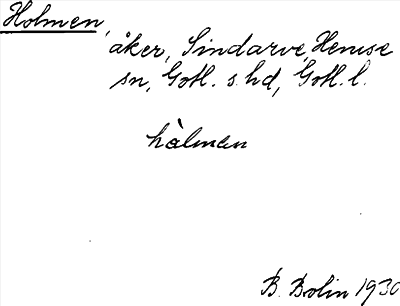 Holmen,
åker, Sindarve, Hemse
sn, Gotl. s. hd, Gotl. l.
hàlmen
B. Bolin 1930